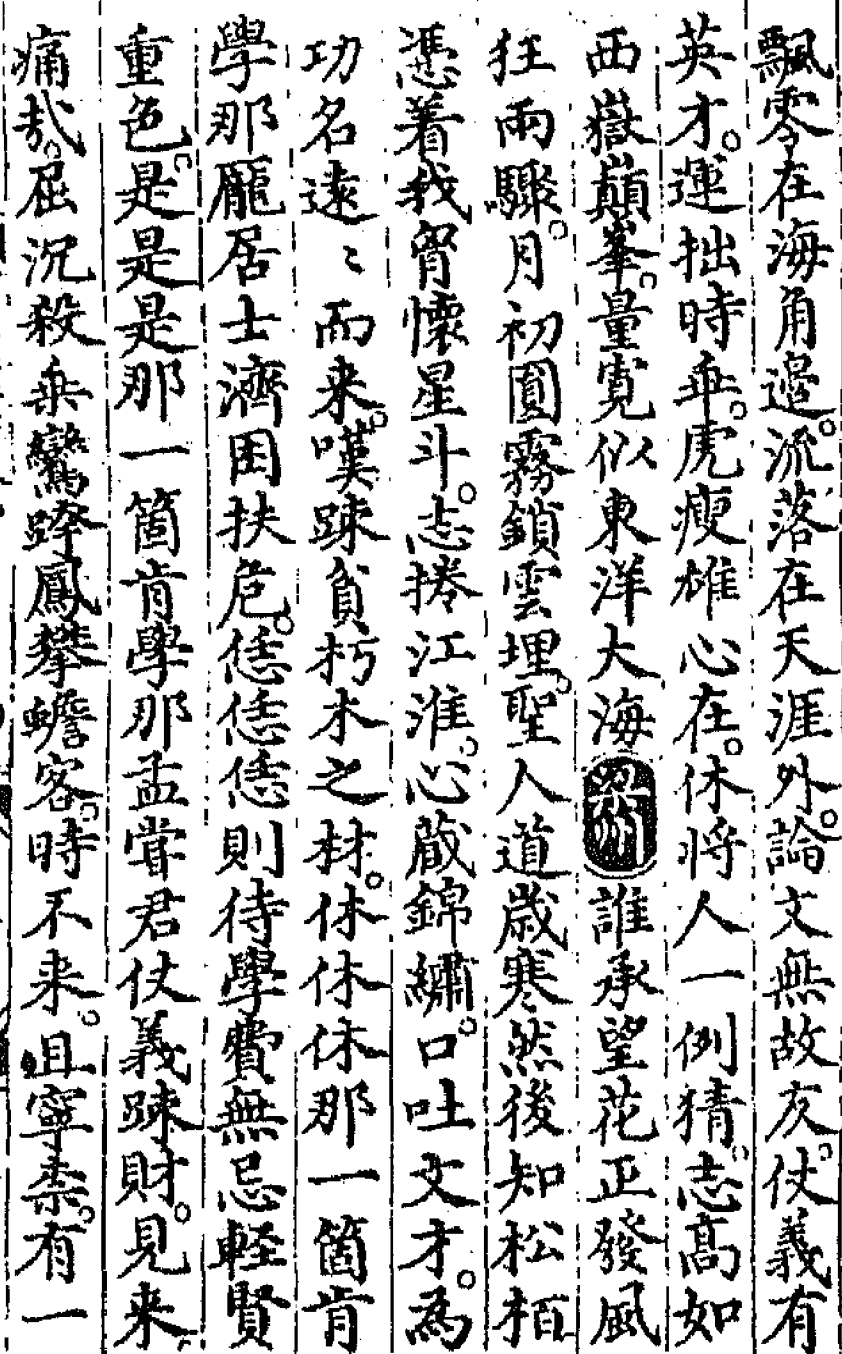 飄零在海角邉。流落在天涯外。論文無故友。仗義有
英才。運拙時乖。虎瘦雄心在。休將人一例猜。志髙如
西嶽巔峯。量寛似東洋大海誰承望花正發風
狂雨驟。月初圓霧鎖雲埋。聖人道歲寒然後知松栢
憑着我胷懷星斗。志捲江淮。心蔵錦繡。口吐文才。為
功名遠〻而来。嘆踈貧朽木之材。休休休那一箇肯
學那龐居士濟困扶危。恁恁恁則待學費無忌輕賢
重色。是是是那一箇肯學那孟嘗君仗義踈財。見来
痛㢤。屈沉殺乗鸞跨鳳攀蟾客。時不来。且寧柰。有一